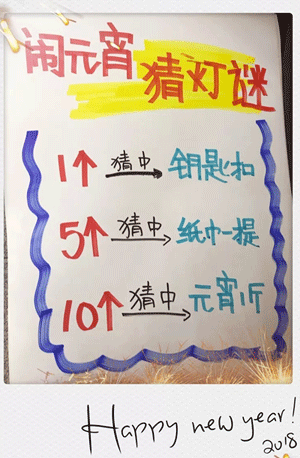 闹元宵
猜灯谜
1个 猜中→ 钥匙扣
5个 猜中→ 纸巾一提
10个 猜中→ 元宵1斤
Happy new year!
2018